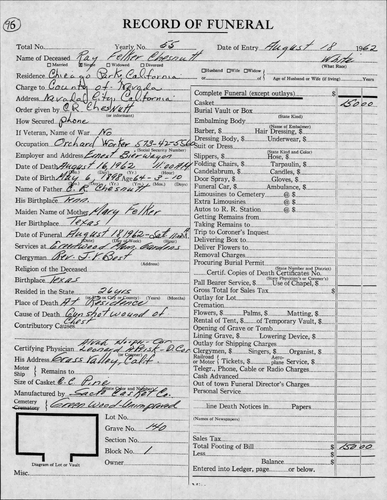 95
RECORD OF FUNERAL
Total No. Yearly No. 65 Date of Entry August 18 1962
Name of Deceased Ray Felker Chesnutt White
(What Race)
Married Single Widowed Divorced Husband Wife Widow
Residence Chicago Park, California Age of Husband or Wife (if living) Years
Charge to County of Nevada
Address Nevada City California
Order given by C.R. Chesnutt
(or informant)
How Secured phone
If Veteran, of War No
Occupation Orchard Worker 573-42-5560
(Social Security Number)
Employer and Address Ernest Bierwagen
Date of Death August 16, 1962 11:00 A M
Date of Birth May 6, 1898 Age 64-3-10
Name of Father C. R. Chesnutt
His Birthplace Tenn.
Maiden Name of Mother Mary Felker
Her Birthplace Texas
Date of Funeral August 18, 1962 - Sat
Services at Greenwood Mem. Gardens
Clergyman Rev. J. V. Bost
(Address)
Religion of the Deceased
Birthplace Texas
Resided in the State 26 yrs
(Years) (Months)
Place of Death At Residence
Cause of Death Gunshot wound of
Chest
Contributory Causes
Certifying Physician
(or Coroner)
His Address Grass Valley, Calif.
Motor
Ship
Remains to
Size of Casket C. C. Pine
(State Color and Number)
Manufactured by Sacto Casket Co.
Cemetery
Crematory Greenwood-Unimproved
Lot No.
Grave No. 140
Section No.
Block No. 1
Owner
Diagram of Lot or Vault
Misc.
Complete Funeral (except outlays) $
Casket 150 00
Burial Vault or Box
(State Kind)
Embalming Body
(Name of Embalmer)
Barber, $ Hair Dressing, $
Dressing Body, $ Underwear, $
Suit or Dress
(State Kind and Color)
Slippers, $ Hose, $
Folding Chairs, $ Tarpaulin, $
Candelabrum, $ Candles, $
Door Spray, $ Gloves, $
Funeral Car, $ Ambulance, $
Limousines to Cemetery @ $
Extra Limousines @ $
Autos to R. R. Station @ $
Getting Remains from
Taking Remains to
Trip to Coroner's Inquest
Delivering Box to
Deliver Flowers to
Removal Charges
Procuring Burial Permit
(State Number and District)
Certif. Copies of Death Certificates No.
(State Physician's or Coroner's)
Pall Bearer Service, $ Use of Chapel, $
Gross Total for Sales Tax $
Outlay for Lot
Cremation
Flowers, $ Palms, $ Matting, $
Rental of Tent, $ of Temporary Vault, $
Opening of Grave or Tomb
Lining Grave, $ Lowering Device, $
Outlay for Shipping Charges
Clergyman, $ Singers, $ Organist, $
Railroad
or Motor Tickets, $ Aeroplane Service, $
Telegr., Phone, Cable or Radio Charges
Cash Advanced
Out of town Funeral Director's Charges
Personal Service
line Death Notices in Papers
(Names of Newspapers)
Sales Tax
Total Footing of Bill $ 150 00
Less $
Balance $
Entered into Ledger, page or below.